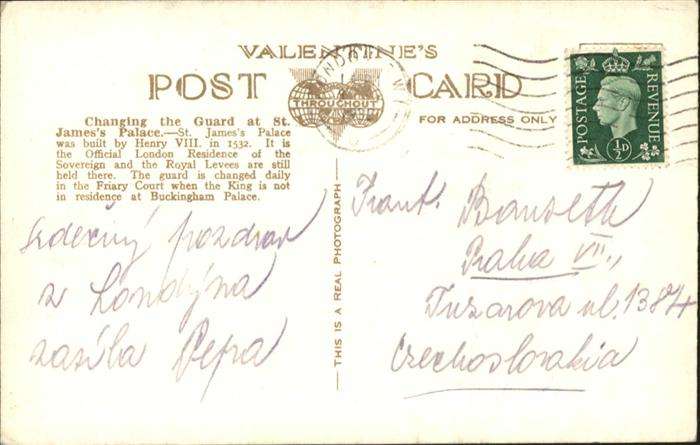 VALENTINE'S
POST CARD
THROUGHOUT
FOR ADDRESS ONLY
POSTAGE
REVENUE
½D
Changing the Guard at St.
James's Palace.—St. James's Palace
was built by Henry VIII. in 1532. It is
the Official London Residence of the
Sovereign and the Royal Levees are still
held there. The guard is changed daily
in the Friary Court when the King is not
in residence at Buckingham Palace.
THIS IS A REAL PHOTOGRAPH
srdečný pozdrav
z Londýna
zasílá Pepa
Frant.
Praha VII.,
Tusarova ul. 1384
Czechoslovakia